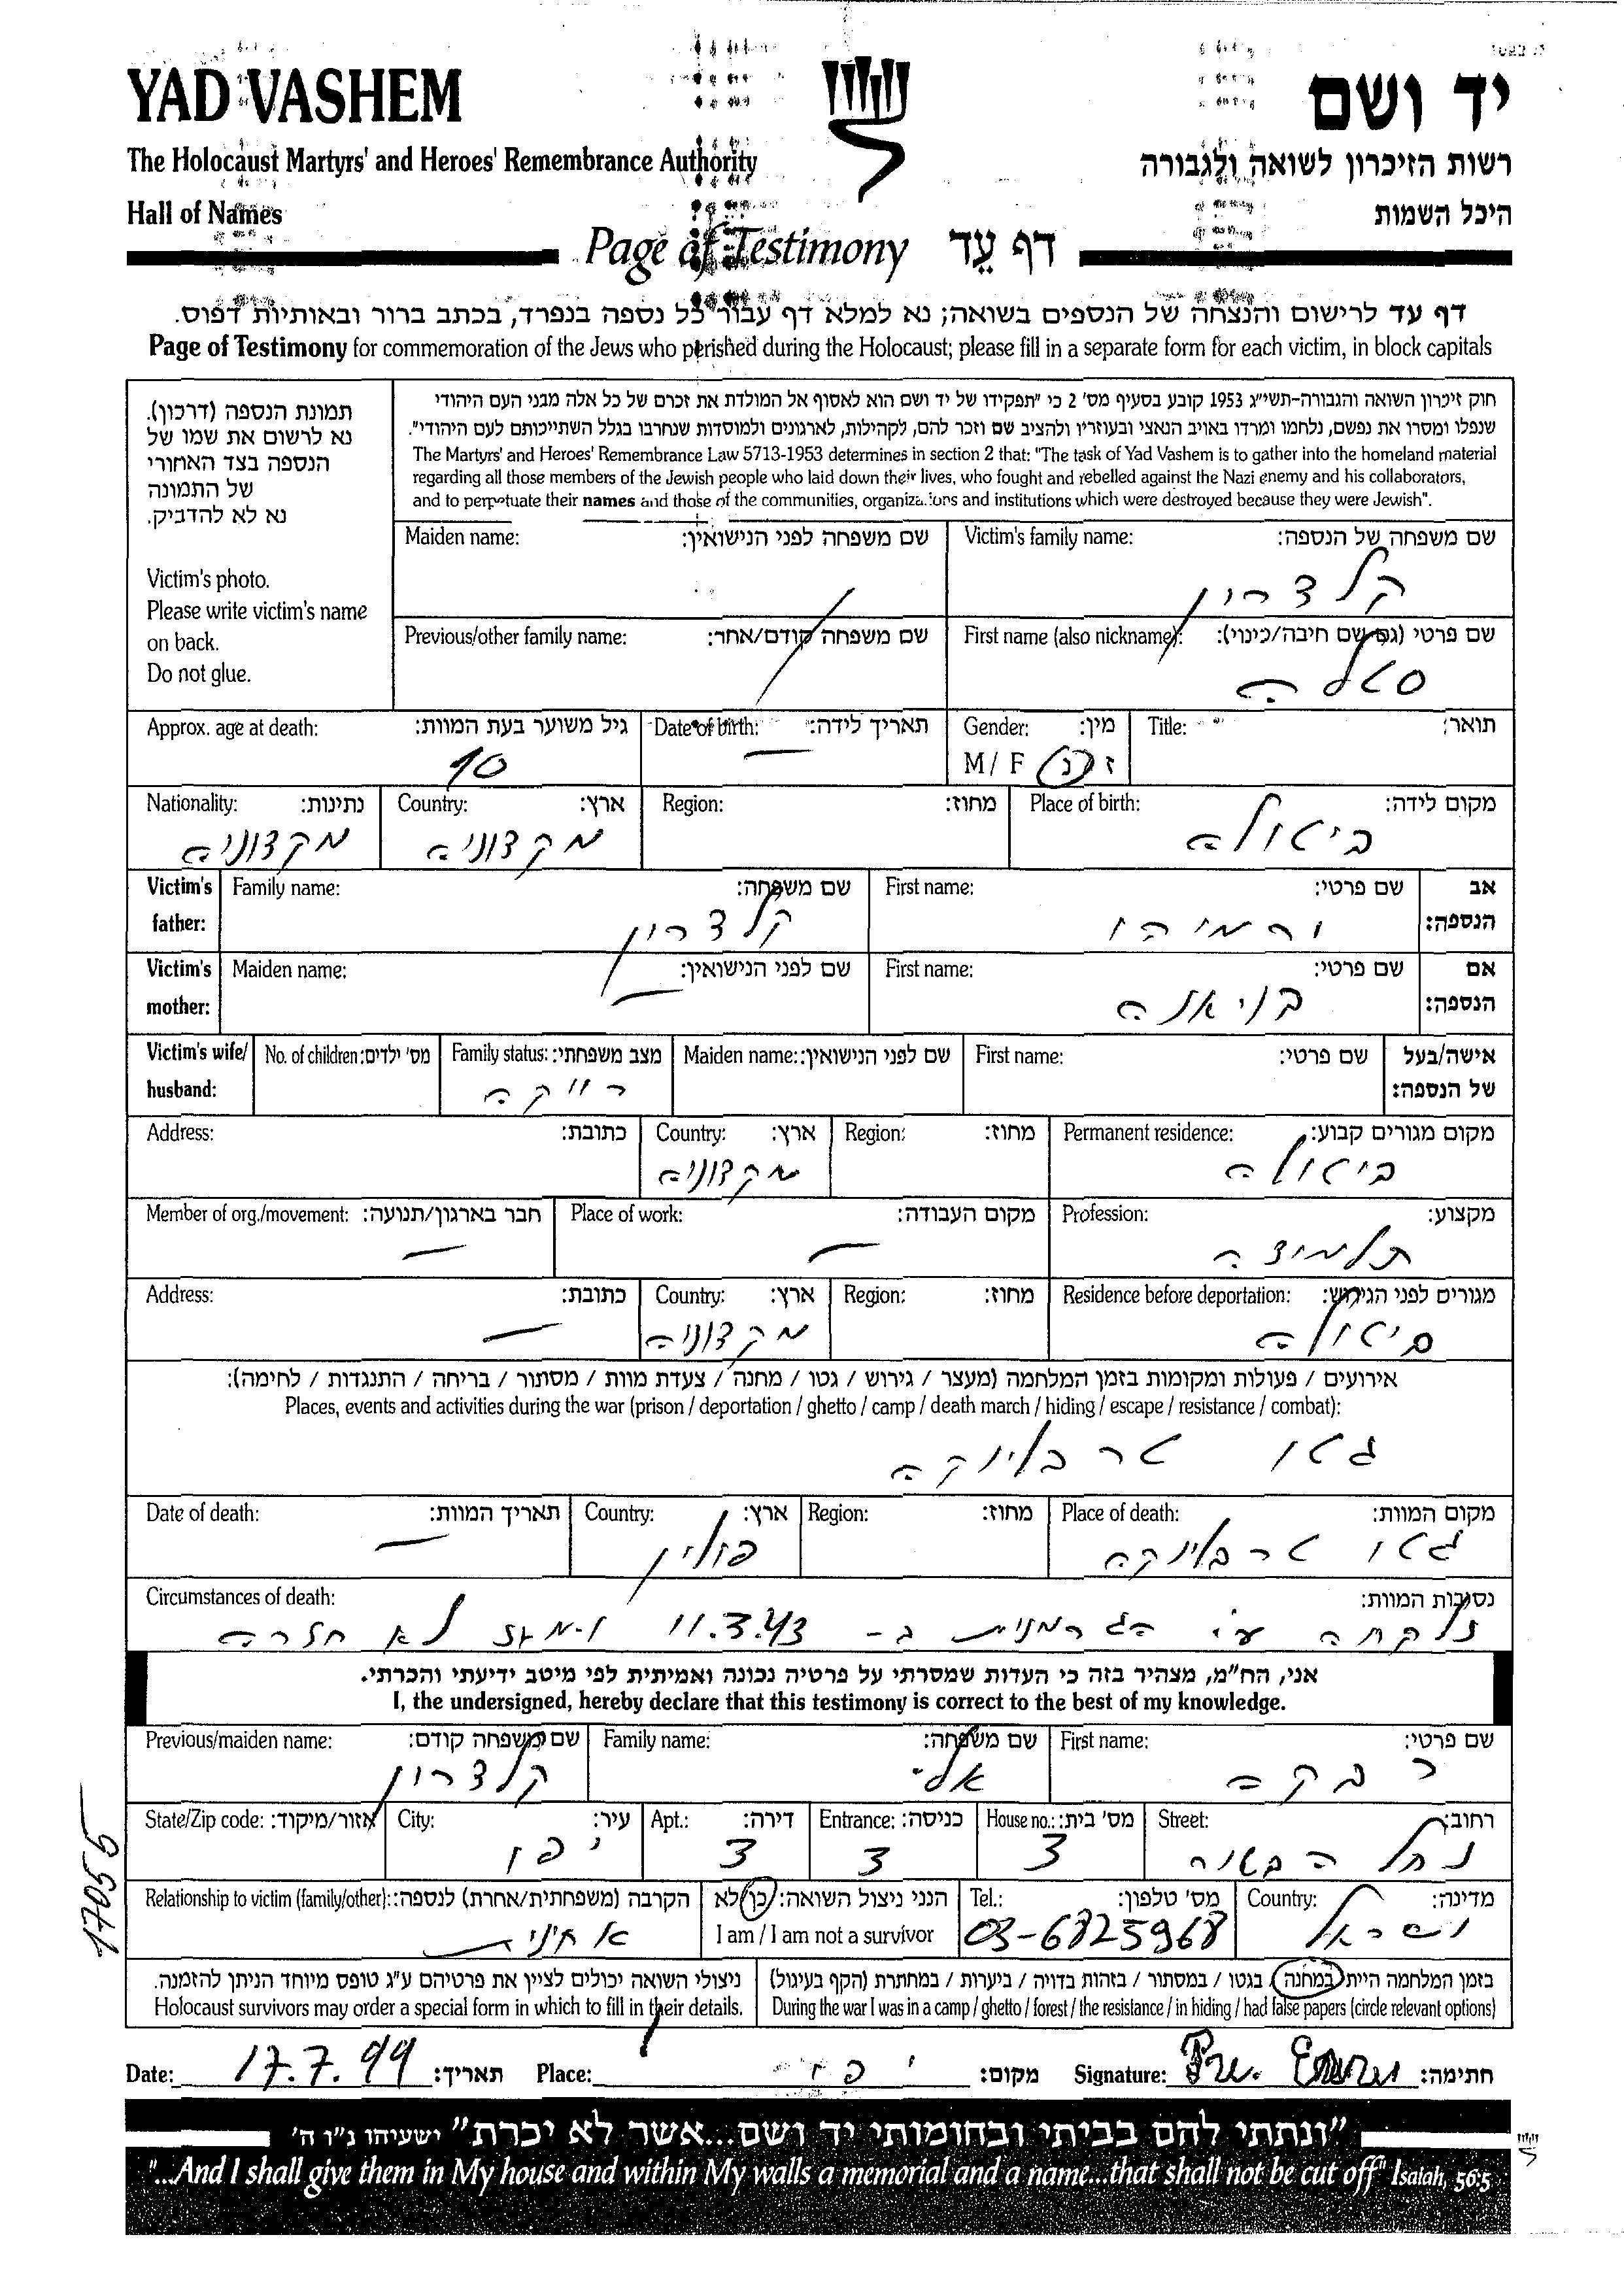 YAD VASHEM
יד ושם
The Holocaust Martyrs' and Heroes' Remembrance Authority
רשות הזיכרון לשואה ולגבורה
Hall of Names
היכל השמות
Page of Testimony דף עֵד
דף עד לרישום והנצחה של הנספים בשואה; נא למלא דף עבור כל נספה בנפרד, בכתב ברור ובאותיות דפוס.
Page of Testimony for commemoration of the Jews who perished during the Holocaust; please fill in a separate form for each victim, in block capitals
תמונת הנספה (דרכון).
נא לרשום את שמו של
הנספה בצד האחורי
של התמונה
נא לא להדביק.
Victim's photo.
Please write victim's name
on back.
Do not glue.
חוק זיכרון השואה והגבורה-תשי"ג 1953 קובע בסעיף מס' 2 כי "תפקידו של יד ושם הוא לאסוף אל המולדת את זכרם של כל אלה מבני העם היהודי
שנפלו ומסרו את נפשם, נלחמו ומרדו באויב הנאצי ובעוזריו ולהציב שם וזכר להם, לקהילות, לארגונים ולמוסדות שנחרבו בגלל השתייכותם לעם היהודי".
The Martyrs' and Heroes' Remembrance Law 5713-1953 determines in section 2 that: "The task of Yad Vashem is to gather into the homeland material
regarding all those members of the Jewish people who laid down their lives, who fought and rebelled against the Nazi enemy and his collaborators,
and to perpetuate their names and those of the communities, organizations and institutions which were destroyed because they were Jewish".
Victim's family name: שם משפחה של הנספה:
קלדרון
Maiden name: שם משפחה לפני הנישואין:
First name (also nickname): שם פרטי (גם שם חיבה/כינוי):
סאלה
Previous/other family name: שם משפחה קודם/אחר:
Title: תואר:
Gender: מין:
M / F ז / נ
Date of birth: תאריך לידה:
Approx. age at death: גיל משוער בעת המוות:
10
Place of birth: מקום לידה:
ביטולה
Region: מחוז:
Country: ארץ:
מקדוניה
Nationality: נתינות:
מקדוניה
Victim's father: אב הנספה:
First name: שם פרטי:
Family name: שם משפחה:
קלדרון
Victim's mother: אם הנספה:
First name: שם פרטי:
Maiden name: שם לפני הנישואין:
Victim's wife/ husband: אישה/בעל של הנספה:
First name: שם פרטי:
Maiden name: שם לפני הנישואין:
Family status: מצב משפחתי:
רווקה
No. of children: מס' ילדים:
Permanent residence: מקום מגורים קבוע:
ביטולה
Region: מחוז:
Country: ארץ:
מקדוניה
Address: כתובת:
Profession: מקצוע:
תלמידה
Place of work: מקום העבודה:
Member of org./movement: חבר בארגון/תנועה:
Residence before deportation: מגורים לפני הגירוש:
ביטולה
Region: מחוז:
Country: ארץ:
מקדוניה
Address: כתובת:
אירועים / פעולות ומקומות בזמן המלחמה (מעצר / גירוש / גטו / מחנה / צעדת מוות / מסתור / בריחה / התנגדות / לחימה):
Places, events and activities during the war (prison / deportation / ghetto / camp / death march / hiding / escape / resistance / combat):
גטו טרבלינקה
Place of death: מקום המוות:
גטו טרבלינקה
Region: מחוז:
Country: ארץ:
פולין
Date of death: תאריך המוות:
Circumstances of death: נסיבות המוות:
נלקחה ע"י הגרמנית ב- 11.3.43 ומאז לא חזרה
אני, הח"מ, מצהיר בזה כי העדות שמסרתי על פרטיה נכונה ואמיתית לפי מיטב ידיעתי והכרתי.
I, the undersigned, hereby declare that this testimony is correct to the best of my knowledge.
First name: שם פרטי:
רבקה
Family name: שם משפחה:
אלי
Previous/maiden name: שם משפחה קודם:
קלדרון
Street: רחוב:
נחל הבשור
House no.: מס' בית:
3
Entrance: כניסה:
3
Apt.: דירה:
3
City: עיר:
יפו
State/Zip code: אזור/מיקוד:
Country: מדינה:
ישראל
Tel.: מס' טלפון:
03-6825968
הנני ניצול השואה: כן/לא
I am / I am not a survivor
Relationship to victim (family/other): הקרבה (משפחתית/אחרת) לנספה:
אחינית
בזמן המלחמה הייתי במחנה / בגטו / במסתור / בזהות בדויה / ביערות / במחתרת (הקף בעיגול)
During the war I was in a camp / ghetto / forest / the resistance / in hiding / had false papers (circle relevant options)
ניצולי השואה יכולים לציין את פרטיהם ע"ג טופס מיוחד הניתן להזמנה.
Holocaust survivors may order a special form in which to fill in their details.
17055
Date: 17.7.99 תאריך: Place: יפו מקום: Signature: חתימה:
"ונתתי להם בביתי ובחומותי יד ושם...אשר לא יכרת" ישעיהו נ"ו ה'
"...And I shall give them in My house and within My walls a memorial and a name...that shall not be cut off" Isaiah, 56:5